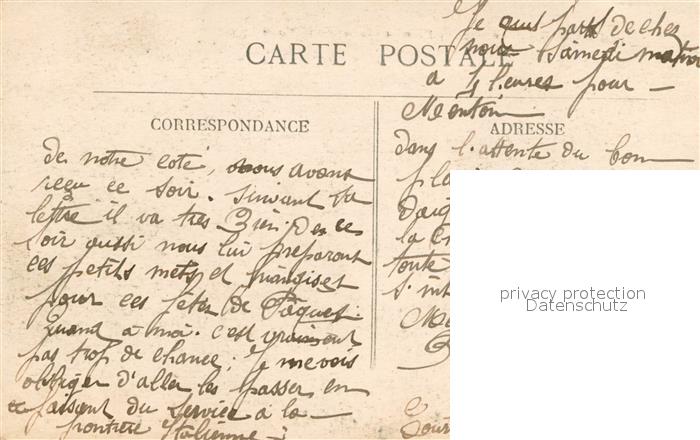 Je suis parti de chez
nous samedi matin
CARTE POSTALE
a 4 heures pour
Menton
CORRESPONDANCE
ADRESSE
de notre coté, nous avons
reçu ce soir. Suivant sa
lettre il va tres Bien. De ce
soir aussi nous lui preparont
ces petits mets et friandises
pour ces fetes de Pâques.
Quand a moi. c'est vraiment
pas trop de chance; Je me vois
obliger d'aller les passer en
faisant du Service a la
frontière Italienne
dans l'attente du bon
la
toute
privacy protection
Datenschutz